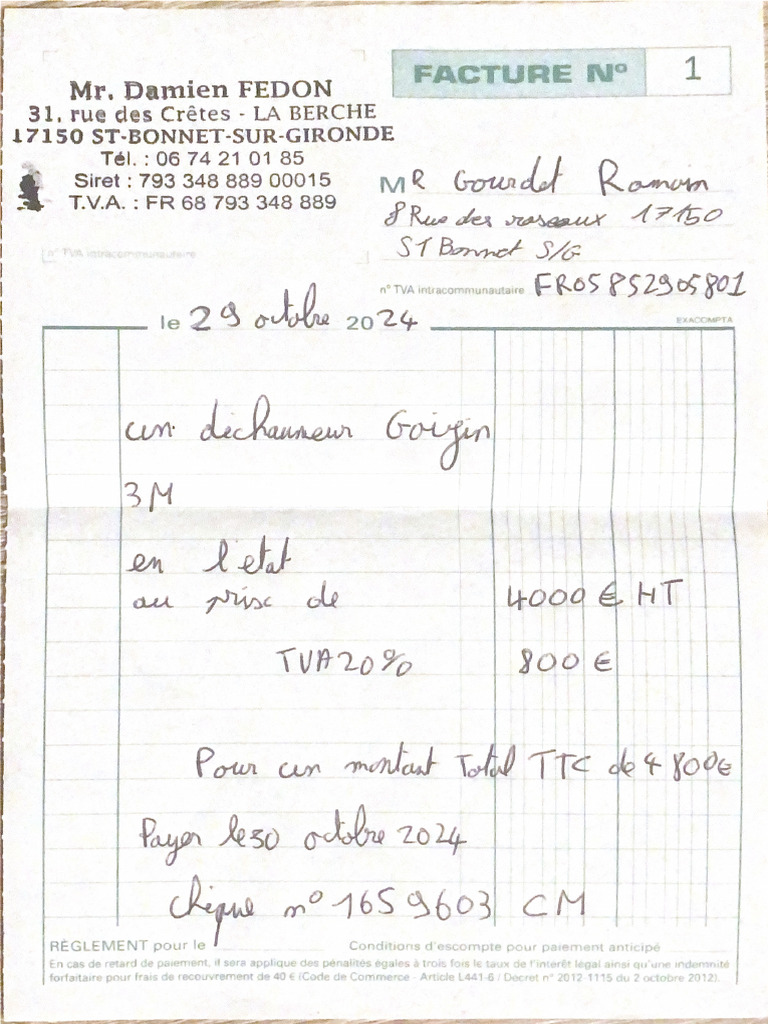 FACTURE Nº 1
Mr. Damien FEDON
31, rue des Crêtes - LA BERCHE
17150 ST-BONNET-SUR-GIRONDE
Tél. : 06 74 21 01 85
Siret : 793 348 889 00015
T.V.A. : FR 68 793 348 889
n° TVA intracommunautaire
MR Gourdet Romain
8 Rue des roseaux 17150
ST Bonnet S/G
n° TVA intracommunautaire FR05852905801
le 29 octobre 2024
EXACOMPTA
un déchaumeur Goizin
3M
en l'état
au prix de 4000 € HT
TVA 20% 800 €
Pour un montant Total TTC de 4 800€
Payer le 30 octobre 2024
chèque n° 1659603 CM
RÈGLEMENT pour le
Conditions d'escompte pour paiement anticipé
En cas de retard de paiement, il sera appliqué des pénalités égales à trois fois le taux de l'intérêt légal ainsi qu'une indemnité
forfaitaire pour frais de recouvrement de 40 € (Code de Commerce - Article L441-6 / Décret n° 2012-1115 du 2 octobre 2012).